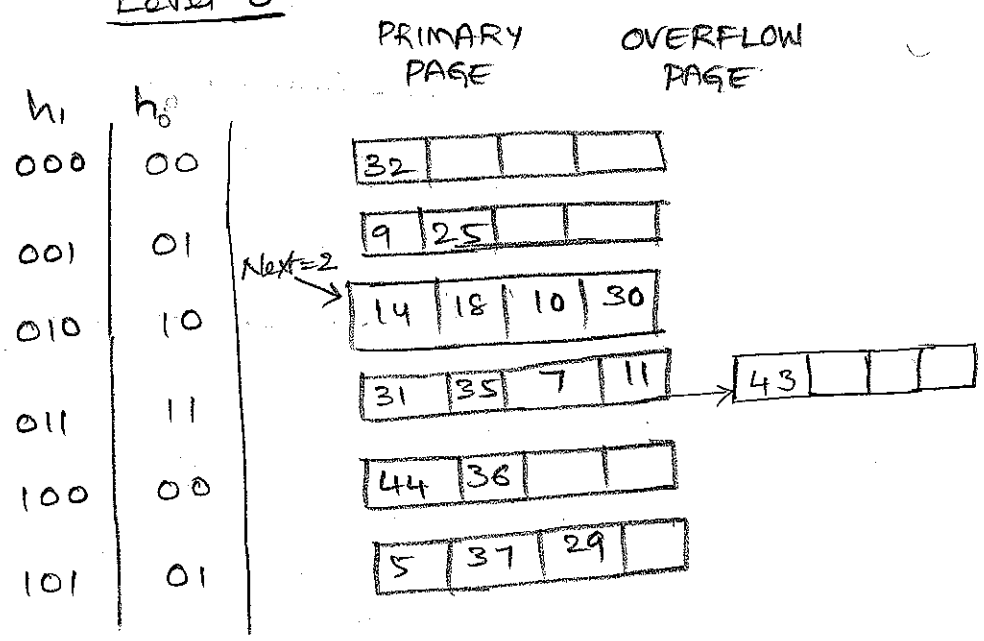 Level 0
PRIMARY PAGE OVERFLOW PAGE
h1 h0
000 00 32
001 01 9 25
Next=2
010 10 14 18 10 30
011 11 31 35 7 11 43
100 00 44 36
101 01 5 37 29